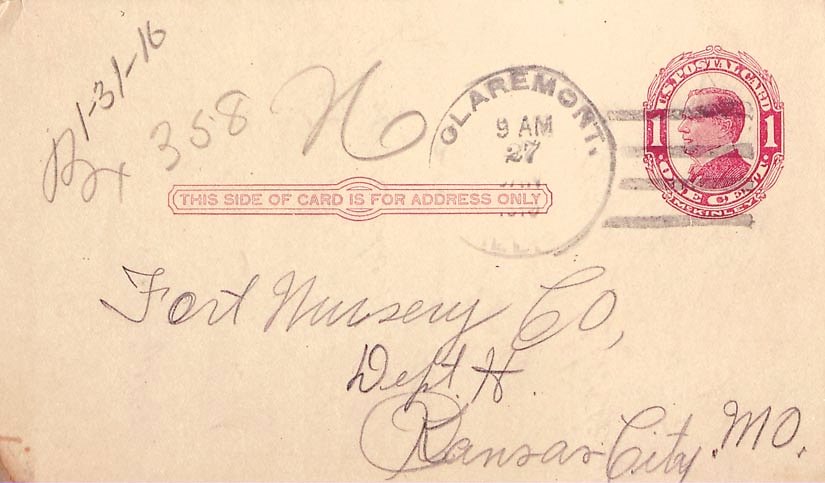 1-31-16
Bx 358 H
CLAREMONT.
9 AM
27
JAN
THIS SIDE OF CARD IS FOR ADDRESS ONLY
U.S. POSTAL CARD
1 1
ONE CENT
McKINLEY
Fort Nursery Co,
Dept. H.
Kansas City, MO.